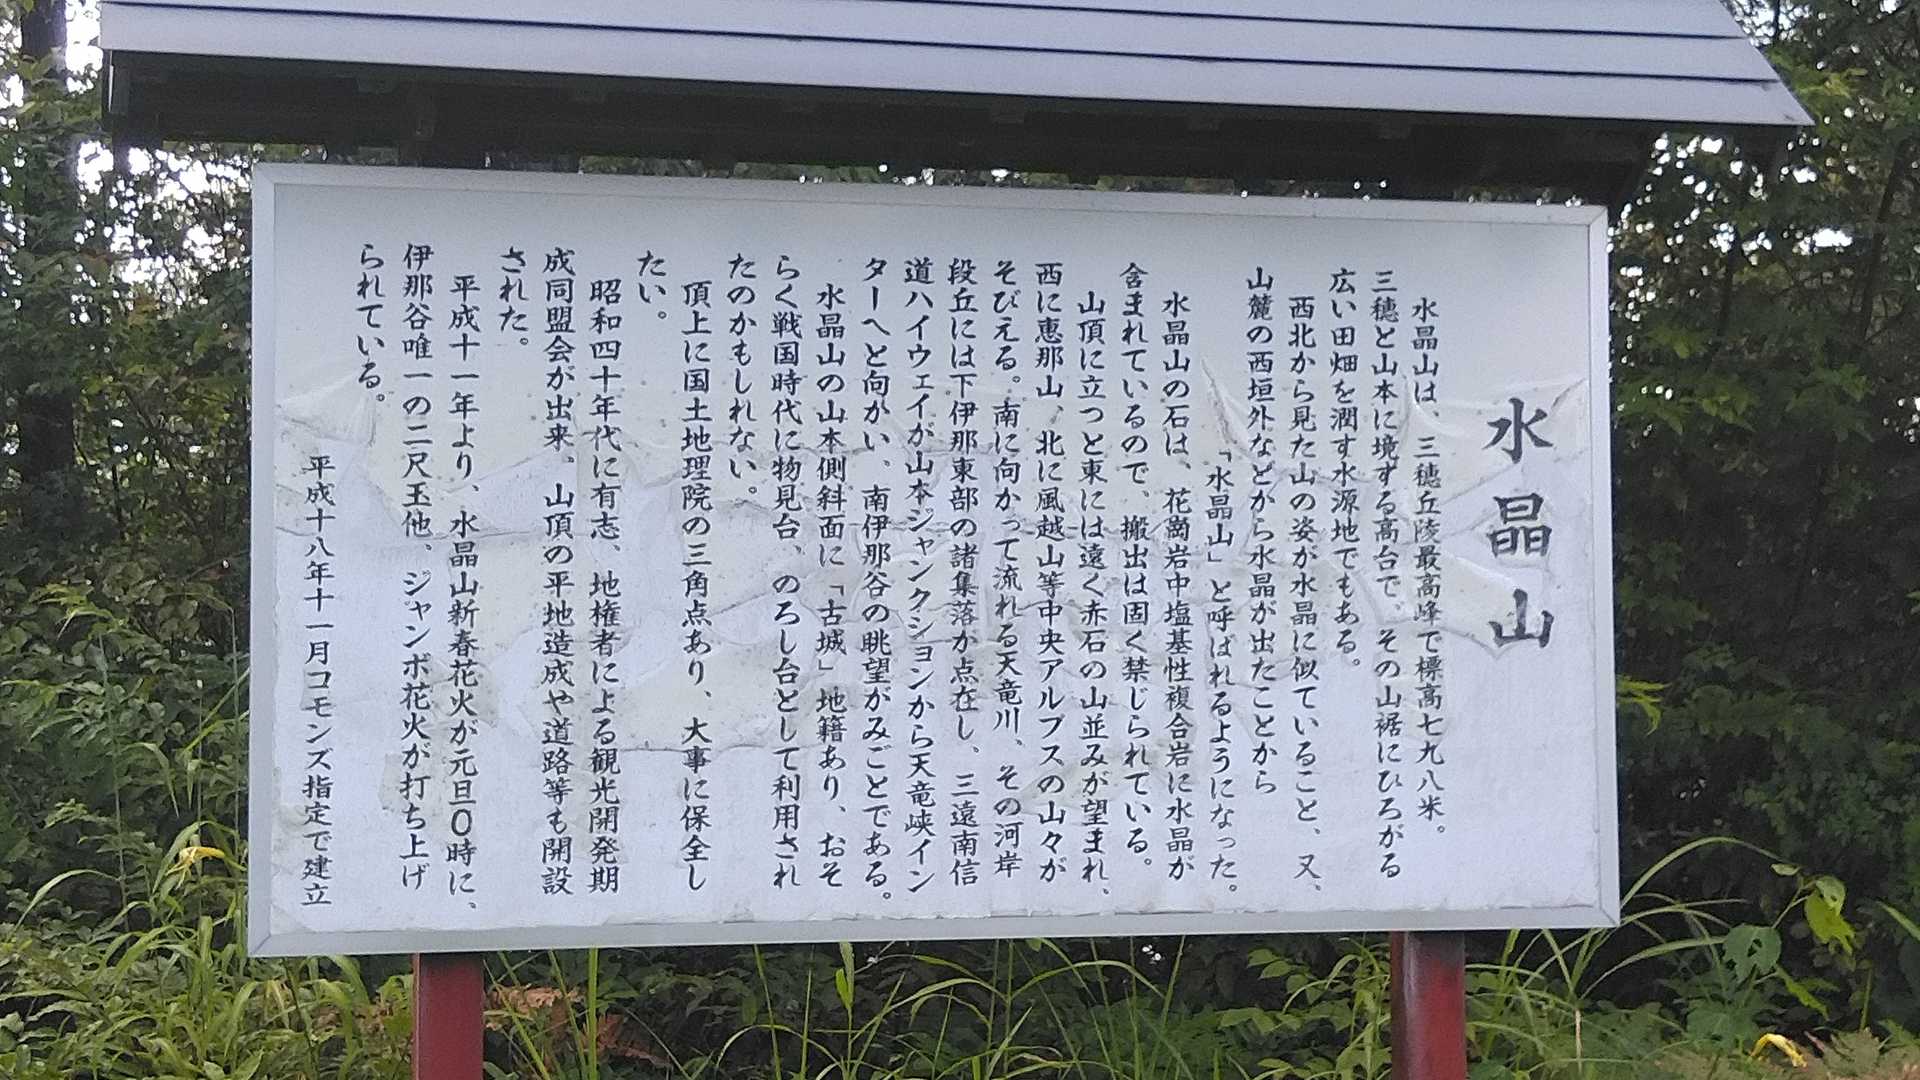 水晶山
水晶山は、三穂丘陵最高峰で標高七九八米。
三穂と山本に境する高台で、その山裾にひろがる
広い田畑を潤す水源地でもある。
西北から見た山の姿が水晶に似ていること、又、
山麓の西垣外などから水晶が出たことから
「水晶山」と呼ばれるようになった。
水晶山の石は、花崗岩中塩基性複合岩に水晶が
含まれているので、搬出は固く禁じられている。
山頂に立つと東には遠く赤石の山並みが望まれ、
西に恵那山、北に風越山等中央アルプスの山々が
そびえる。南に向かって流れる天竜川、その河岸
段丘には下伊那東部の諸集落が点在し、三遠南信
道ハイウェイが山本ジャンクションから天竜峡イン
ターへと向かい、南伊那谷の眺望がみごとである。
水晶山の山本側斜面に「古城」地籍あり、おそ
らく戦国時代に物見台、のろし台として利用され
たのかもしれない。
頂上に国土地理院の三角点あり、大事に保全し
たい。
昭和四十年代に有志、地権者による観光開発期
成同盟会が出来、山頂の平地造成や道路等も開設
された。
平成十一年より、水晶山新春花火が元旦〇時に、
伊那谷唯一の二尺玉他、ジャンボ花火が打ち上げ
られている。
平成十八年十一月コモンズ指定で建立